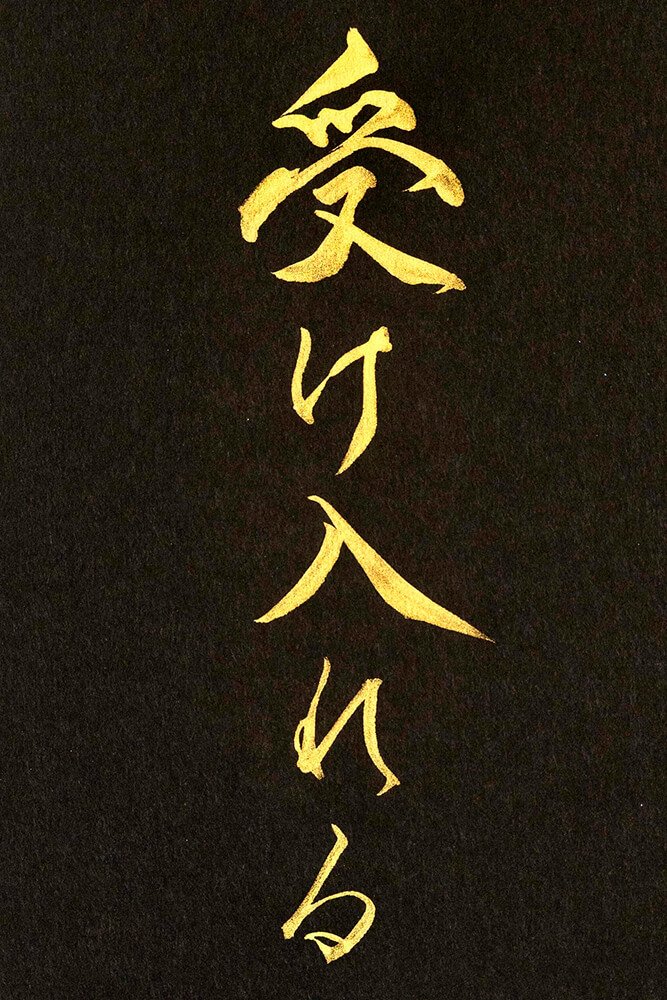 受け入れる